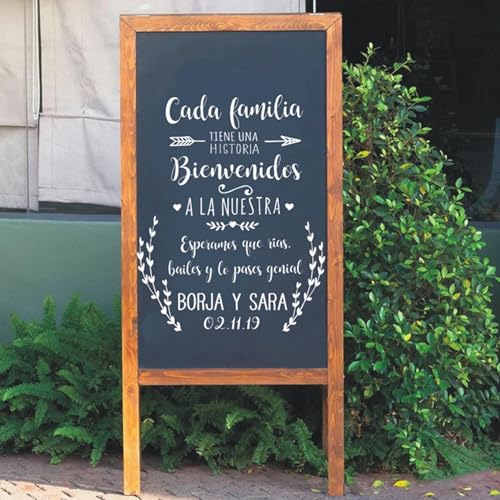 Cada familia
TIENE UNA
HISTORIA
Bienvenidos
A LA NUESTRA
Esperamos que rías,
bailes y lo pases genial
BORJA Y SARA
02.11.19